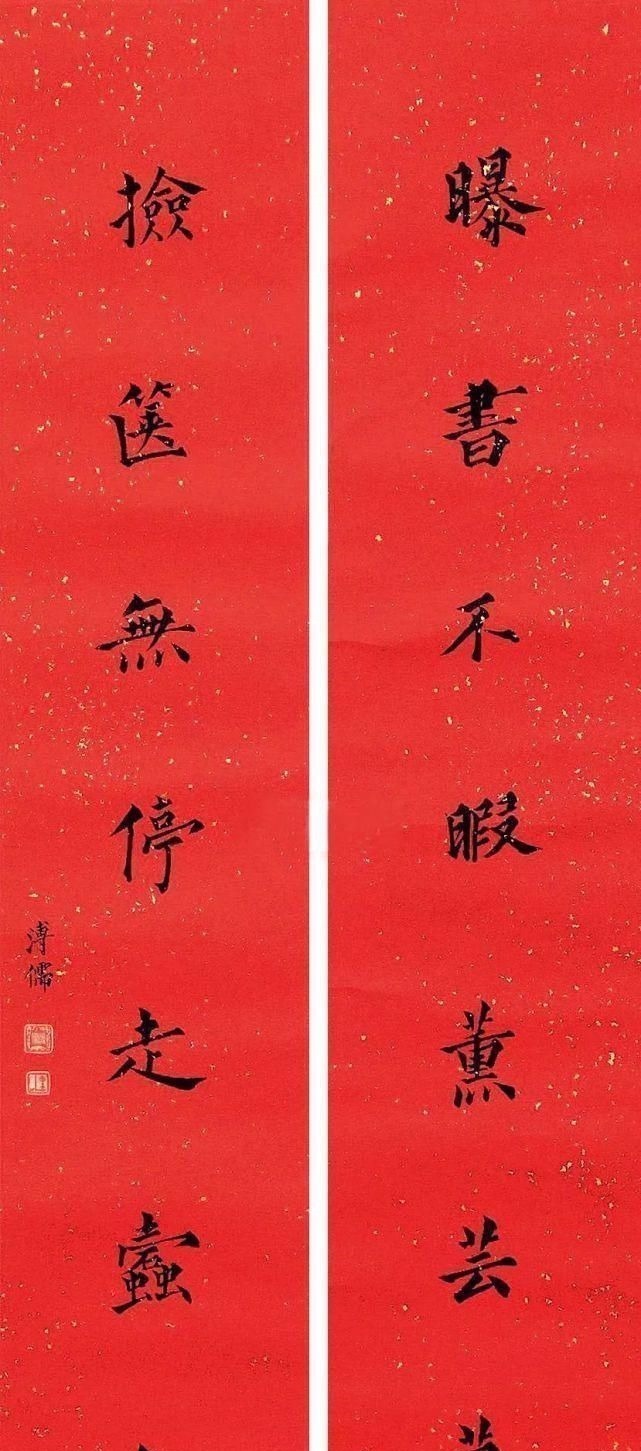 曝書不暇薰芸
撿篋無停走蠹
溥儒